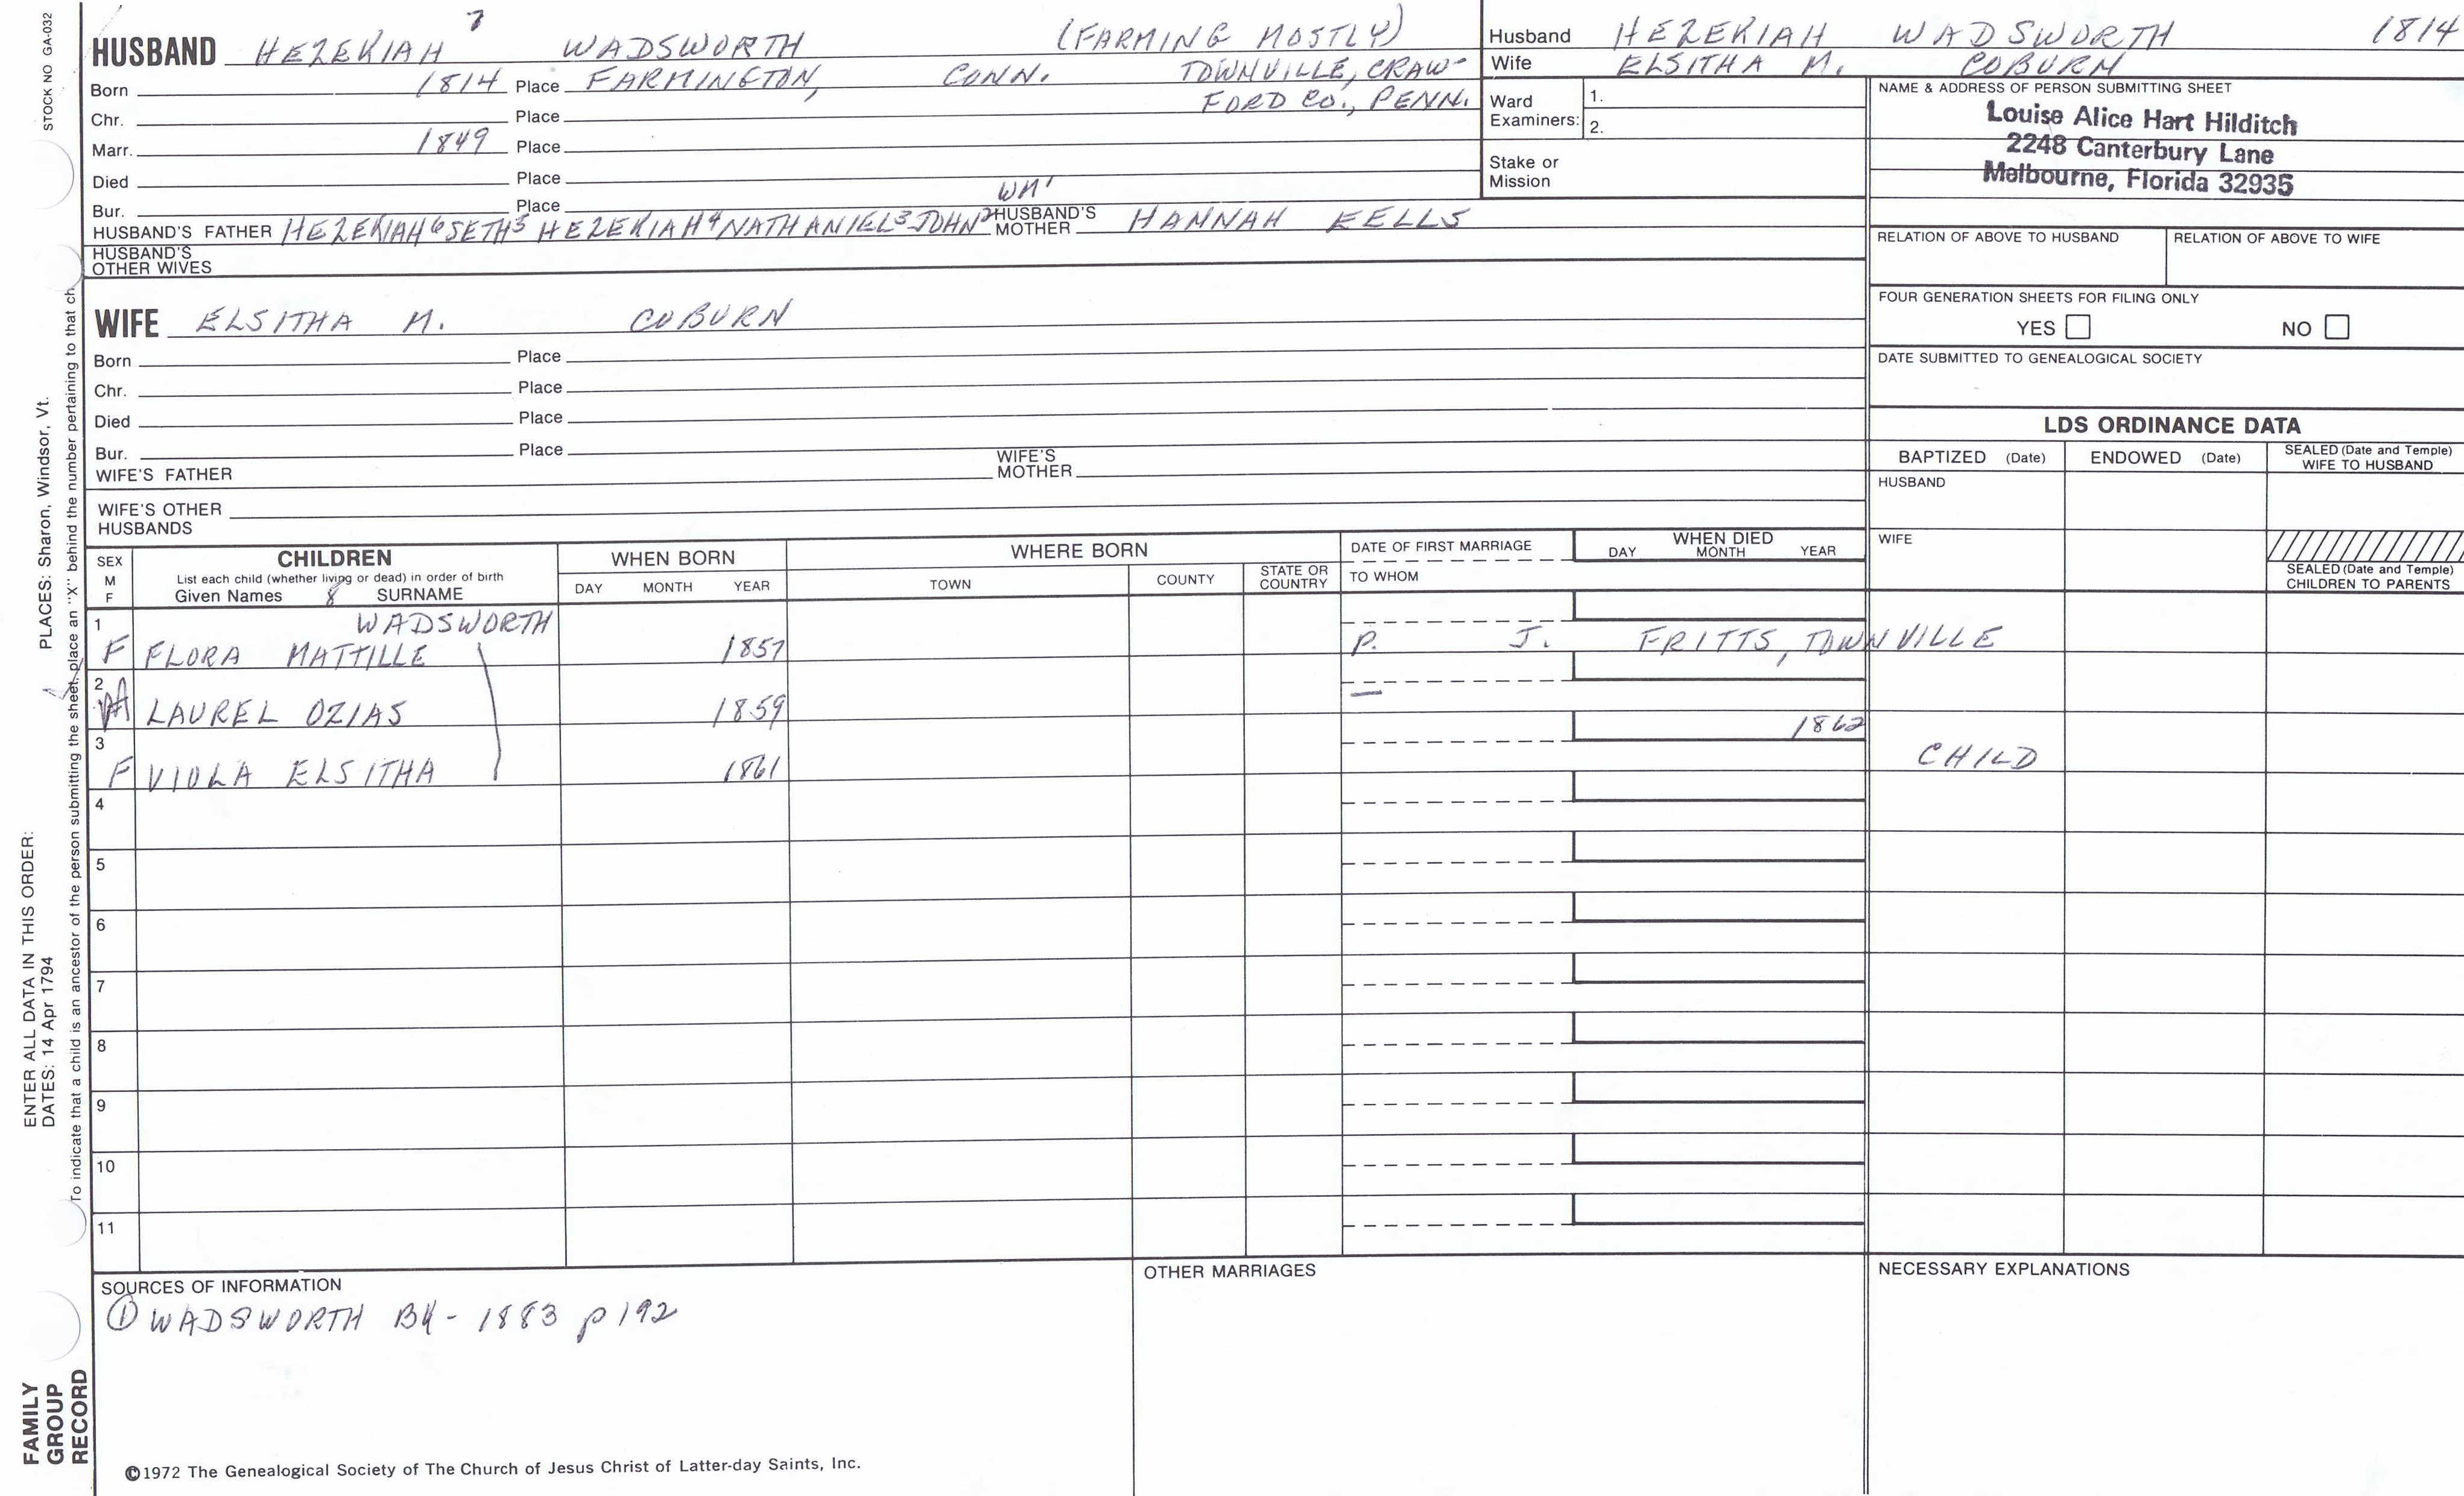 STOCK NO GA-032
7
HUSBAND HEZEKIAH WADSWORTH (FARMING MOSTLY)
Born 1814 Place FARMINGTON, CONN. TOWNVILLE, CRAW-
FORD CO., PENN.
Chr. Place
Marr. 1849 Place
Died Place
Bur. Place WM1
HUSBAND'S FATHER HEZEKIAH6 SETH5 HEZEKIAH4 NATHANIEL3 JOHN2 HUSBAND'S MOTHER HANNAH EELLS
HUSBAND'S
OTHER WIVES
WIFE ELSITHA M. COBURN
Born Place
Chr. Place
Died Place
Bur. Place
WIFE'S FATHER WIFE'S MOTHER
WIFE'S OTHER
HUSBANDS
Husband HEZEKIAH WADSWORTH 1814
Wife ELSITHA M. COBURN
Ward
Examiners:
1.
2.
Stake or
Mission
NAME & ADDRESS OF PERSON SUBMITTING SHEET
Louise Alice Hart Hilditch
2248 Canterbury Lane
Melbourne, Florida 32935
RELATION OF ABOVE TO HUSBAND RELATION OF ABOVE TO WIFE
FOUR GENERATION SHEETS FOR FILING ONLY
YES NO
DATE SUBMITTED TO GENEALOGICAL SOCIETY
LDS ORDINANCE DATA
BAPTIZED (Date) ENDOWED (Date) SEALED (Date and Temple)
WIFE TO HUSBAND
HUSBAND
WIFE
SEALED (Date and Temple)
CHILDREN TO PARENTS
SEX
M
F
CHILDREN
List each child (whether living or dead) in order of birth
Given Names 8 SURNAME
WHEN BORN
DAY MONTH YEAR
WHERE BORN
TOWN COUNTY STATE OR
COUNTRY
DATE OF FIRST MARRIAGE
TO WHOM
WHEN DIED
DAY MONTH YEAR
1 WADSWORTH
F FLORA MATTILLE 1857 P. J. FRITTS, TOWNVILLE
2
M LAUREL OZIAS 1859 —
3 1862
F VIOLA ELSITHA 1861 CHILD
4
5
6
7
8
9
10
11
SOURCES OF INFORMATION
① WADSWORTH BK - 1883 p 192
OTHER MARRIAGES
NECESSARY EXPLANATIONS
©1972 The Genealogical Society of The Church of Jesus Christ of Latter-day Saints, Inc.
ENTER ALL DATA IN THIS ORDER:
DATES: 14 Apr 1794
PLACES: Sharon, Windsor, Vt.
To indicate that a child is an ancestor of the person submitting the sheet, place an "X" behind the number pertaining to that ch
FAMILY
GROUP
RECORD